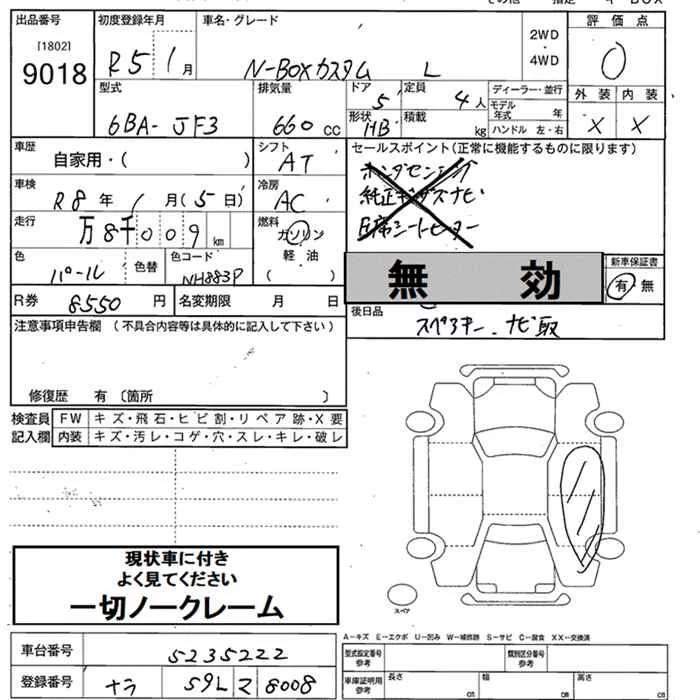 出品番号 初度登録年月 車名・グレード 評価点
[1802]
9018 R5 1月 N-BOXカスタム L 2WD・4WD 0
型式 排気量 ドア 定員 ディーラー・並行 外装 内装
6BA-JF3 660cc 5 4人 モデル年式 年 X X
形状 HB 積載 kg ハンドル 左・右
車歴 シフト セールスポイント(正常に機能するものに限ります)
自家用・( AT ホンダセンシング
車検 冷房 純正ギャザズナビ
R8年 1月(5日) AC シートヒーター
走行 燃料
万8千009km ガソリン 無効 新車保証書
色 色替 色コード 軽油 有・無
パール NH883P ( )
R券 8550円 名変期限 月 日 後日品
注意事項申告欄(不具合内容等は具体的に記入して下さい) スペアキー、ナビ取
修復歴 有〔箇所 〕
検査員 FW キズ・飛石・ヒビ割・リペア跡・X要
記入欄 内装 キズ・汚レ・コゲ・穴・スレ・キレ・破レ
現状車に付き
よく見てください
一切ノークレーム
スペア
A-キズ E-エクボ U-凹み W-補修跡 S-サビ C-腐食 XX-交換済
車台番号 5235222 型式指定番号 参考 類別区分番号 参考
登録番号 ナラ 59L マ 8008 車庫証明用 参考 長さ cm 幅 cm 高さ cm